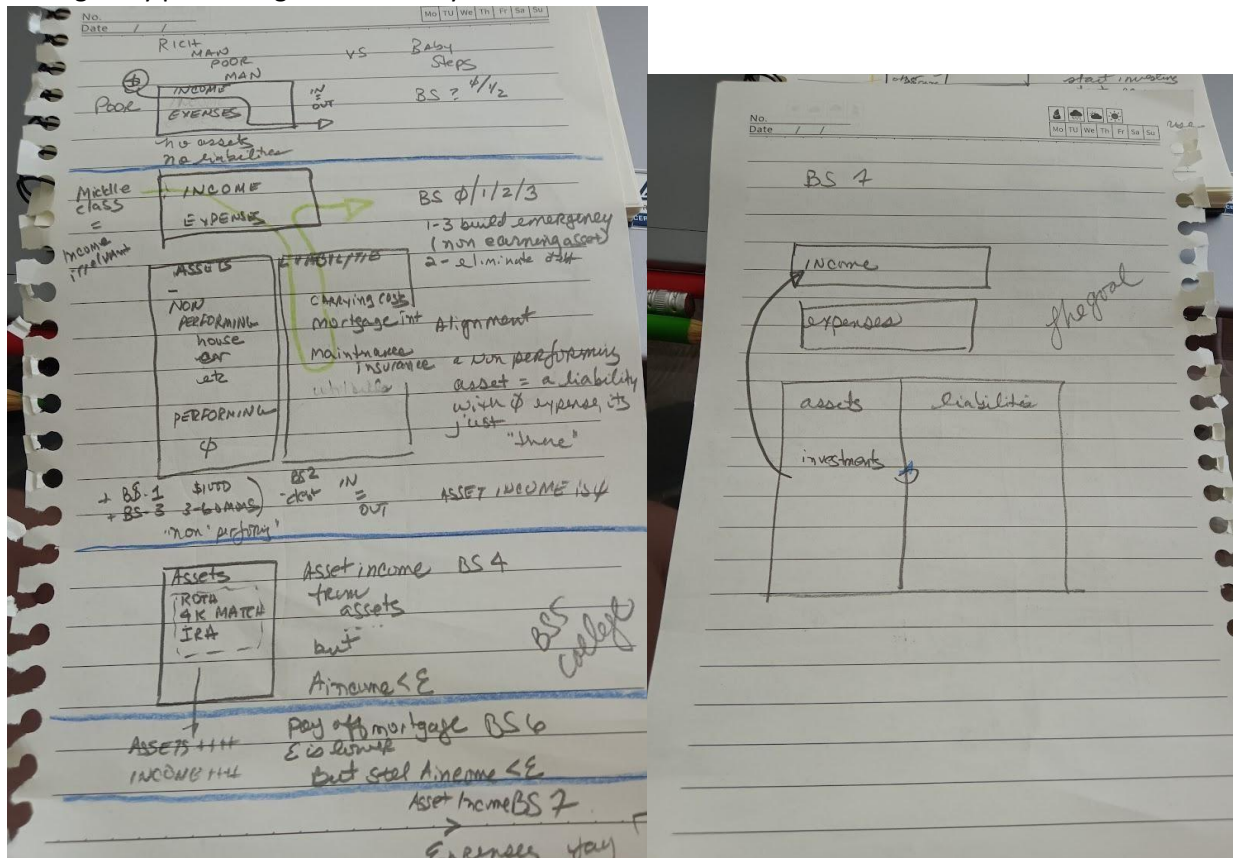 No.
Date / /
Mo TU We Th Fr Sa Su
RICH
MAN
POOR
MAN
VS
Baby
Steps
Poor
$
INCOME
EXENSES
IN
=
OUT
BS ? φ/1/2
no assets
no liabilities
Middle
class
=
income
irrelvant
INCOME
EXPENSES
BS φ/1/2/3
1-3 build emergency
(non earning asset)
2 - eliminate debt
ASSETS
-
NON
PERFORMING
house
car
etc
PERFORMING
φ
CARRYING COST
mortgage int
maintnance
insurance
Alignment
a non performing
asset = a liability
with φ expense, its
just
"there"
+ BS-1
+ BS-3 3-6 MMS
"non'perforing"
BS2
-debt
IN
=
OUT
ASSET INCOME IS φ
Assets
ROTH
4K MATCH
IRA
Asset income BS 4
from
assets
but
Aincome < E
BS5
college
ASSETS ++++
INCOME +++
pay off mortgage BS 6
E is lower
But still Aincome < E
Asset Income BS 7
Expenses stay
start investing
No.
Date / /
Mo TU We Th Fr Sa Su
use
BS 7
income
expenses
the goal
assets
liabilitie
investments